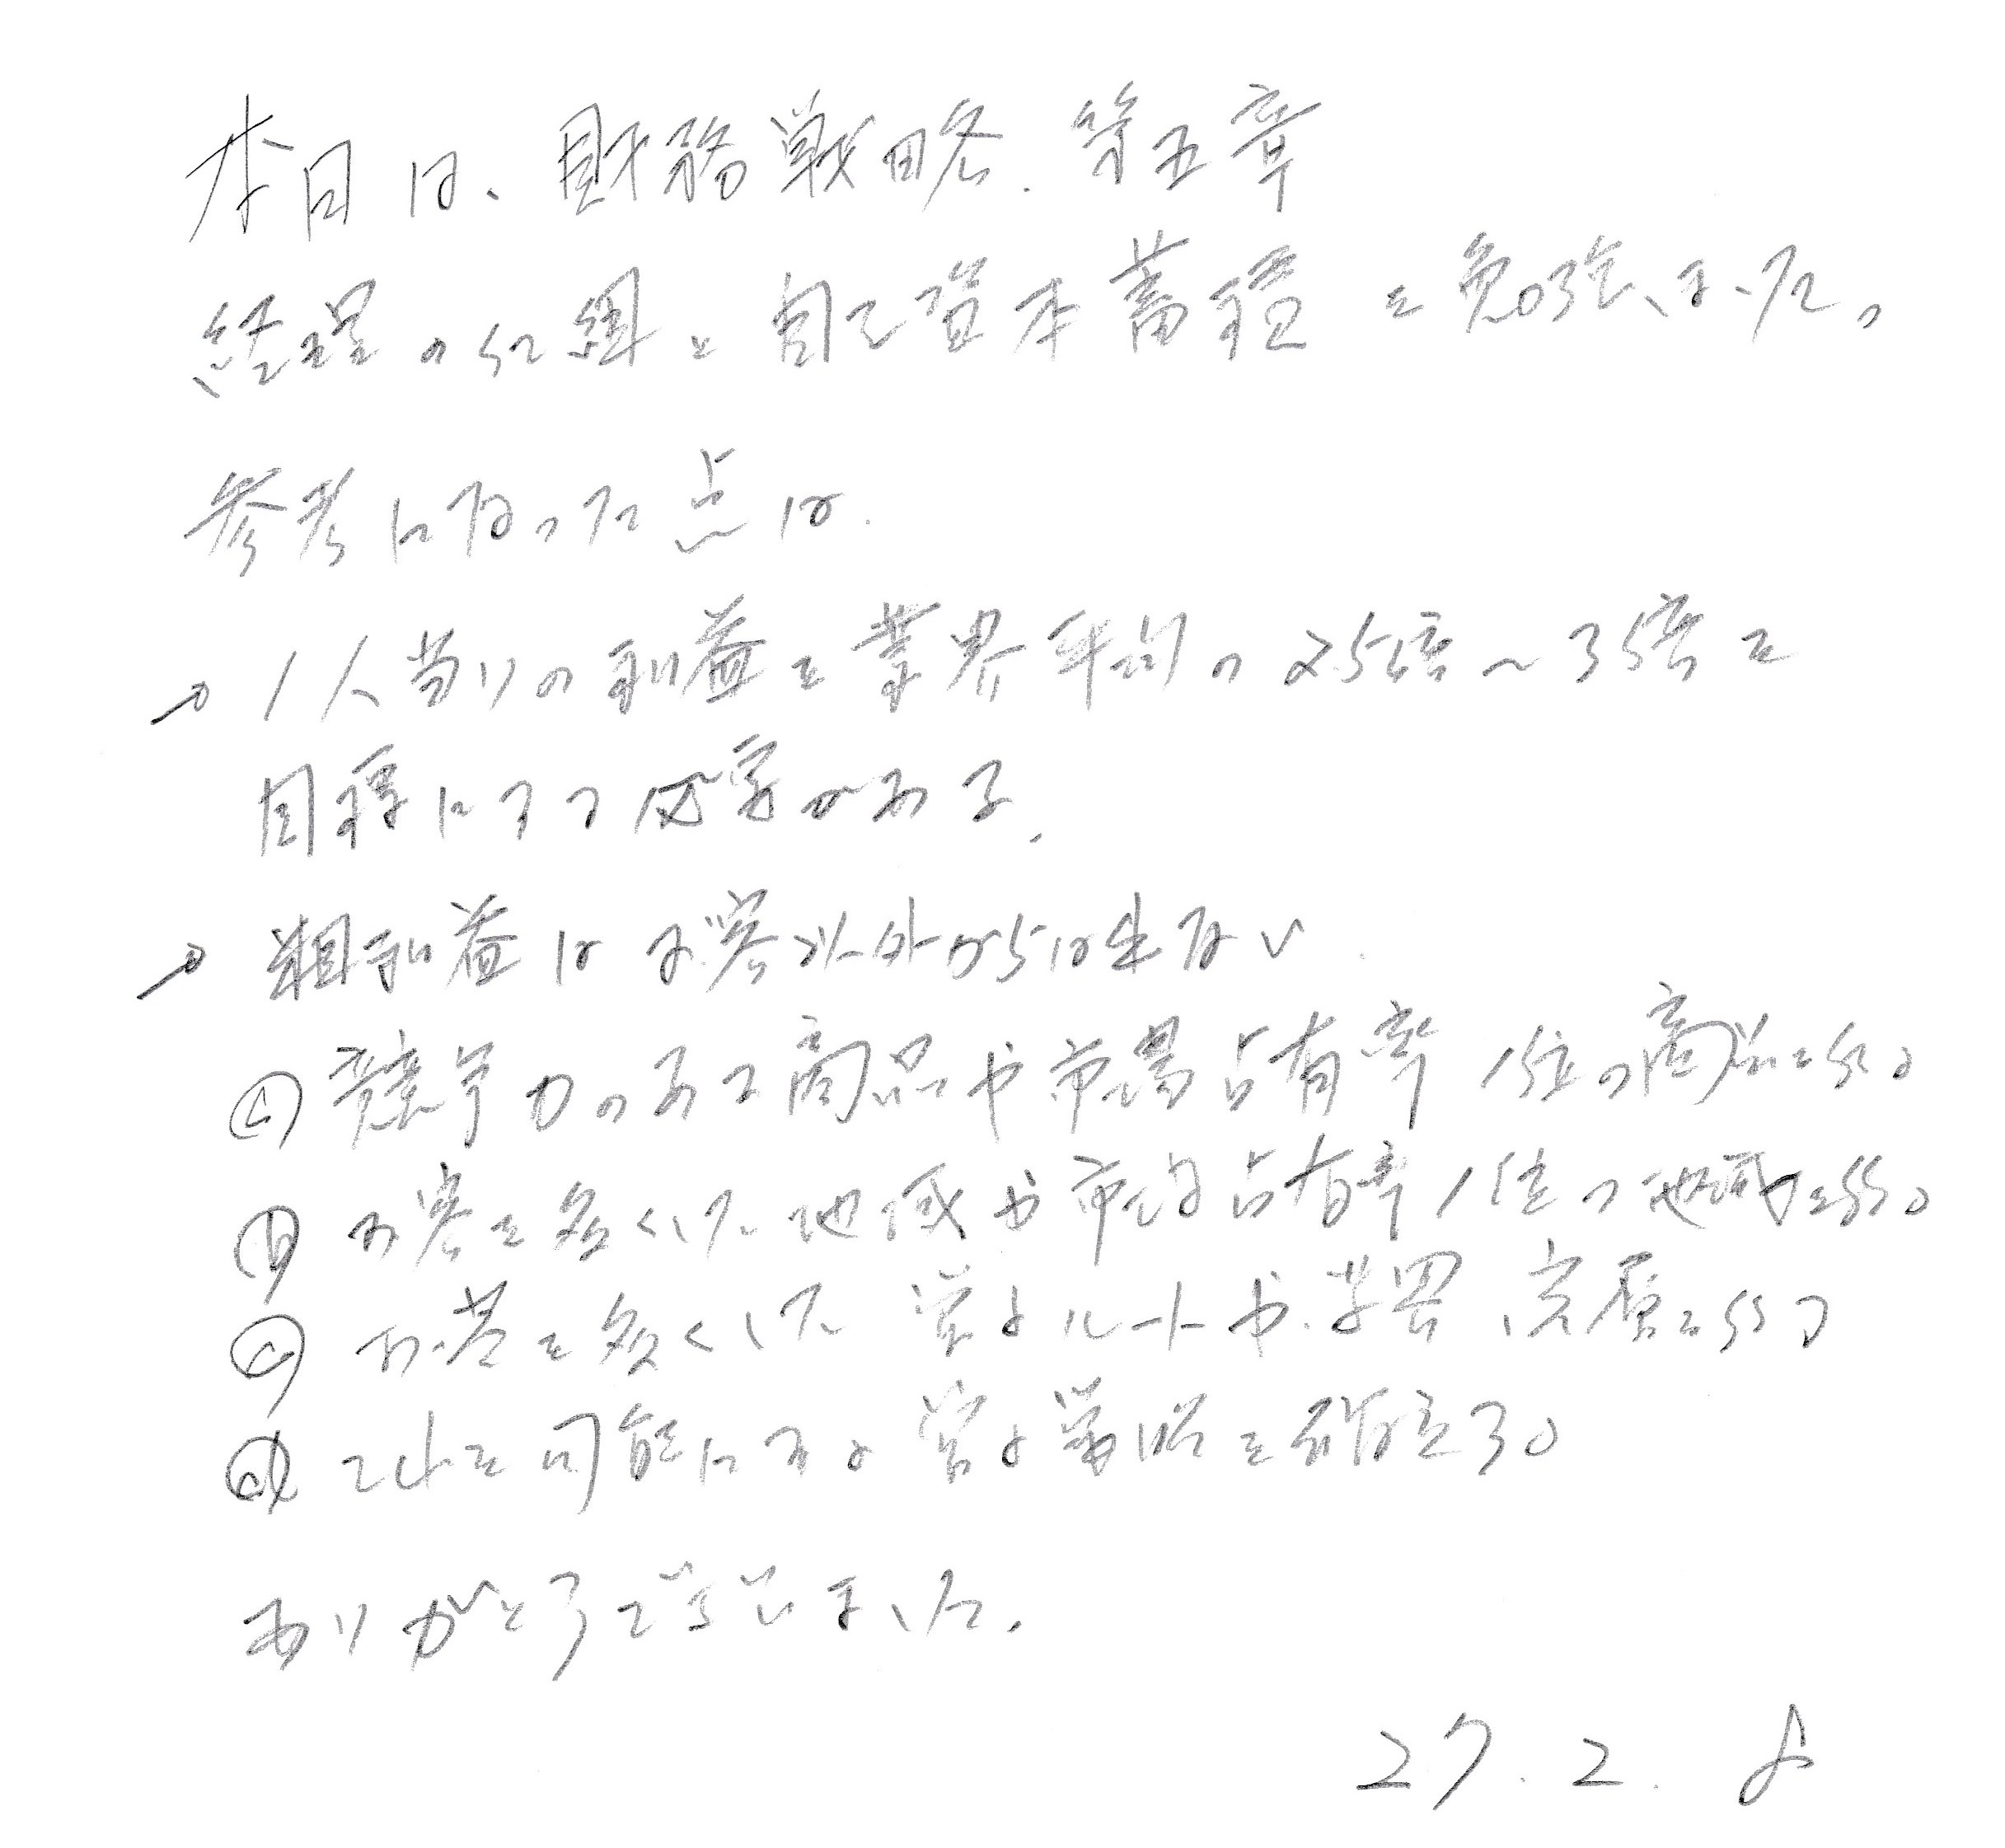 本日は、財務戦略.第五章
経理の仕組と自己資本蓄積を勉強しました。
参考になった点は.
→ 1人当りの利益を業界平均の2.5倍〜3.5倍を
目標にする必要がある.
→ 粗利益はお客以外からは生ない.
ⓐ 競争力のある商品や市場占有率1位の商品を作る
ⓑ お客を多くした地域や市場占有率1位の地域を作る
ⓒ お客を多くした営業ルートや業界、客層を作る
ⓓ これを可能にする営業戦略を確立する
ありがとうございました.
27.2.8